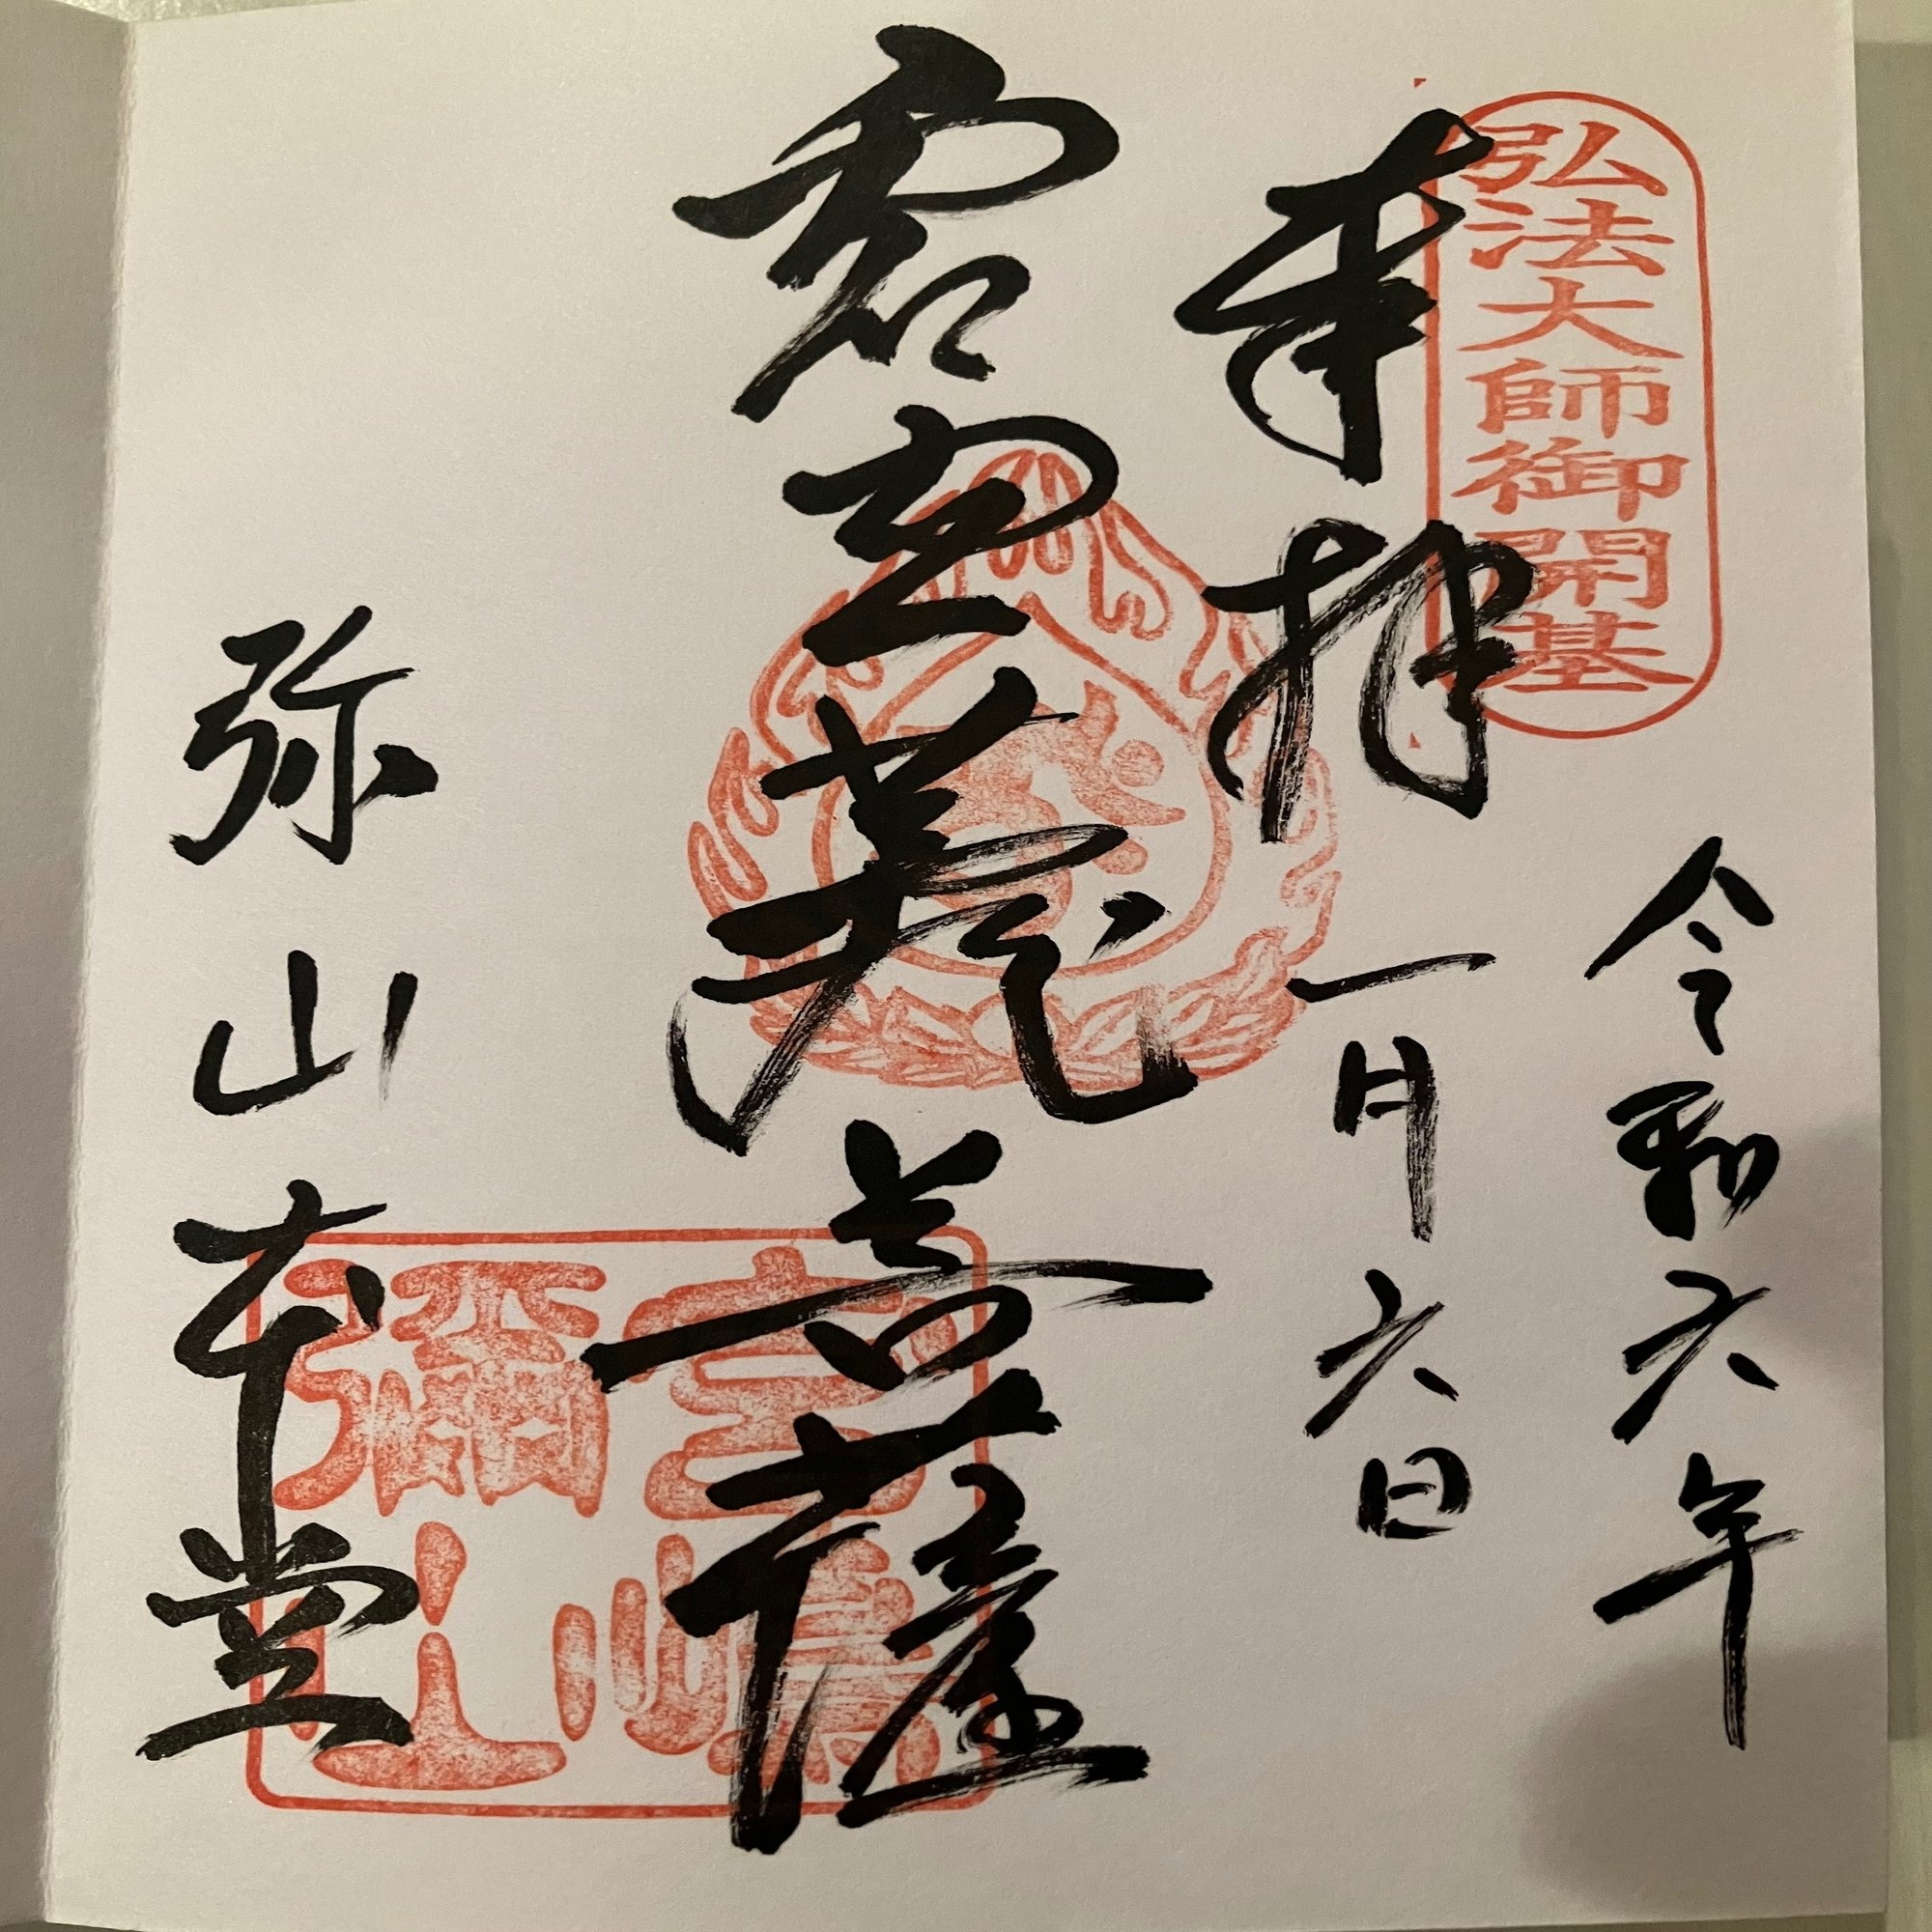 弘法大師御開基
奉拝
令和六年
一月六日
虚空蔵菩薩
弥山本堂
宮島
彌山